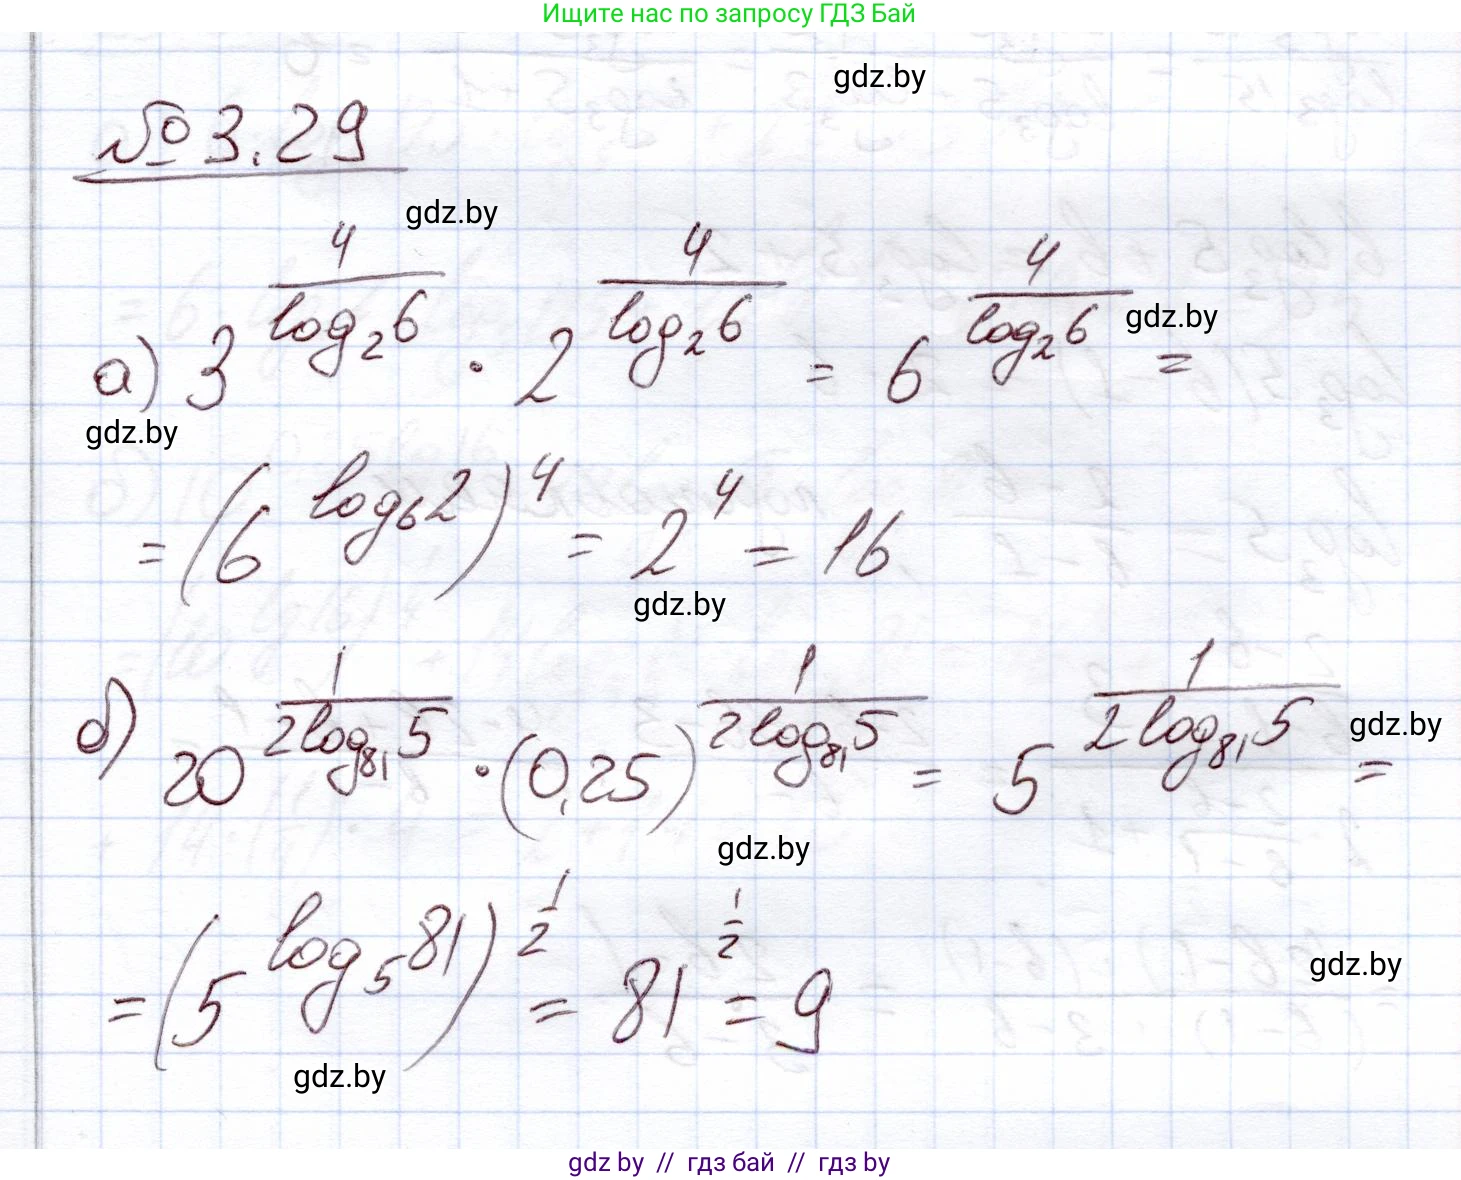 Ищите нас по запросу ГДЗ Бай
gdz.by
№ 3.29
gdz.by
а) 3^(4/log₂6) · 2^(4/log₂6) = 6^(4/log₂6) =
gdz.by
gdz.by
= (6^(log₆2))^4 = 2^4 = 16
gdz.by
б) 20^(1/(2log₈₁5)) · (0,25)^(1/(2log₈₁5)) = 5^(1/(2log₈₁5)) =
gdz.by
gdz.by
= (5^(log₅81))^(1/2) = 81^(1/2) = 9
gdz.by
gdz.by
gdz by // гдз бай // гдз by